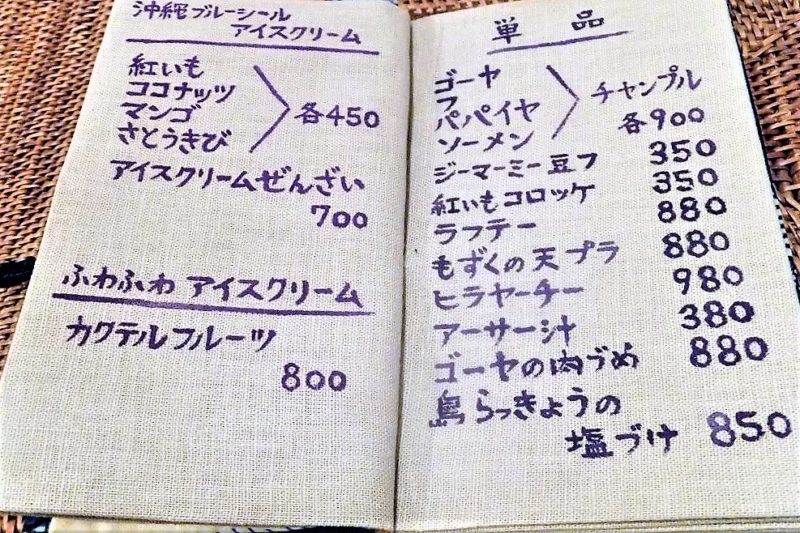 沖縄ブルーシール
アイスクリーム
紅いも
ココナッツ
マンゴ
さとうきび
各450
アイスクリームぜんざい
700
ふわふわ アイスクリーム
カクテルフルーツ
800
単品
ゴーヤ
フ
パパイヤ
ソーメン
チャンプル
各900
ジーマーミー豆フ 350
紅いもコロッケ 350
ラフテー 880
もずくの天プラ 880
ヒラヤーチー 980
アーサー汁 380
ゴーヤの肉づめ 880
島らっきょうの
塩づけ 850